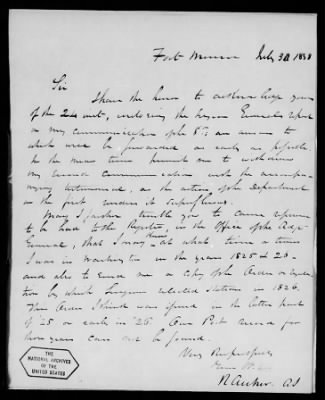 Fort Monroe July 30 1838
Sir
I have the honor to acknowledge yours
of the 24 inst, enclosing the Surgeon General's report
on my communication of the 8th; an answer to
which will be forwarded as early as possible.
In the mean time permit me to withdraw
my second communication with the accompa-
nying testimonial, as the action of the Department
on the first renders it superfluous.
May I further trouble you to cause reference
to be had to the Register, in the Office of the Adjt
General, that I may know at what time or times
I was in Washington in the years 1825 & 26 -
and also to send me a copy of the Order or Regula-
tion by which Surgeons selected Stations in 1826.
This Order I think was issued in the latter part
of 25 or early in '26. Our Post record for
those years can not be found.
Very Respectfully
R Archer. A.S
THE
NATIONAL ARCHIVES
OF THE
UNITED STATES